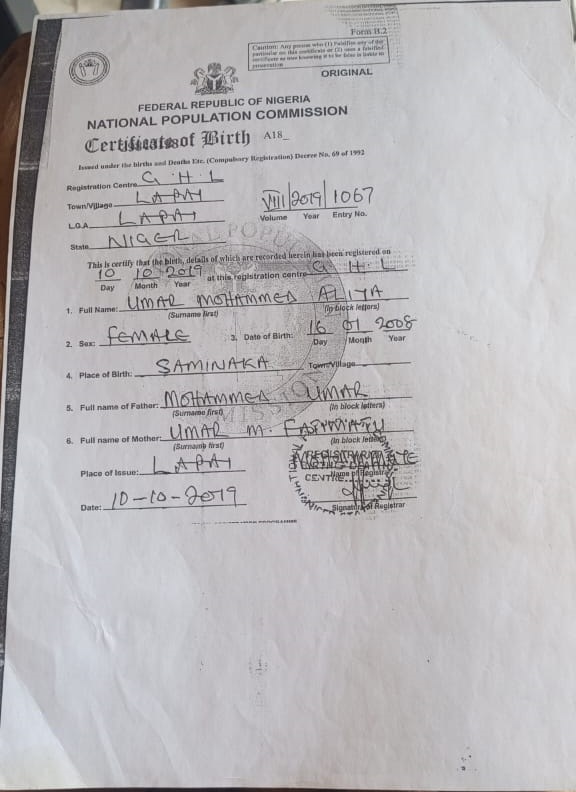 Form B.2
Caution: Any person who (1) Falsifies any of the
particular on this certificate or (2) uses a falsified
certificate as true knowing it to be false is liable to
prosecution
ORIGINAL
FEDERAL REPUBLIC OF NIGERIA
NATIONAL POPULATION COMMISSION
Certificate of Birth A18_
Issued under the births and Deaths Etc. (Compulsory Registration) Decree No. 69 of 1992
Registration Centre G.H.L
Town/Village LAPAI
L.G.A. LAPAI
State NIGER
VIII 2019 1067
Volume Year Entry No.
This is certify that the birth, details of which are recorded herein has been registered on
10 10 2019 at this registration centre G.H.L
Day Month Year
1. Full Name: UMAR MOHAMMED ALIYA
(Surname first) (In block letters)
2. Sex: FEMALE 3. Date of Birth: 16 01 2008
Day Month Year
4. Place of Birth: SAMINAKA Town/Village
5. Full name of Father: MOHAMMED UMAR
(Surname first) (In block letters)
6. Full name of Mother: UMAR M.
(Surname first) (In block letters)
Place of Issue: LAPAI
Name of Registrar
CENTRE
Date: 10-10-2019
Signature of Registrar